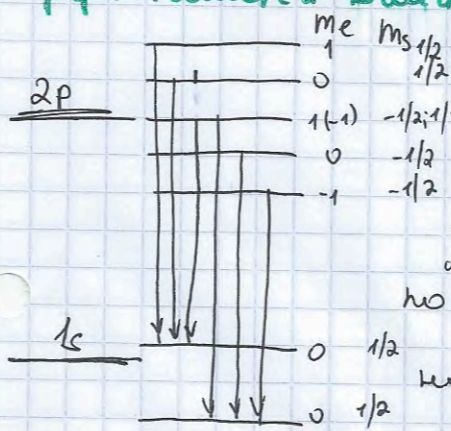 me ms
1 1/2
0 1/2
2p
1(-1) -1/2; 1/
0 -1/2
-1 -1/2
но
1s
0 1/2
0 1/2